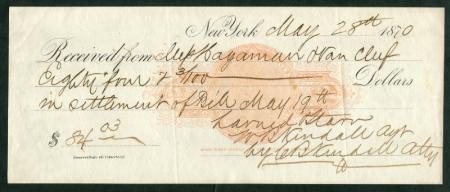 New York May 28th 1870
Received from Hagaman & Van Cleef
Eighty four & 3/100 Dollars
in settlement of Bill May 19th
Larned & Starr
$ 84 03 W B Kendall Agt
by C B Kendall Atty